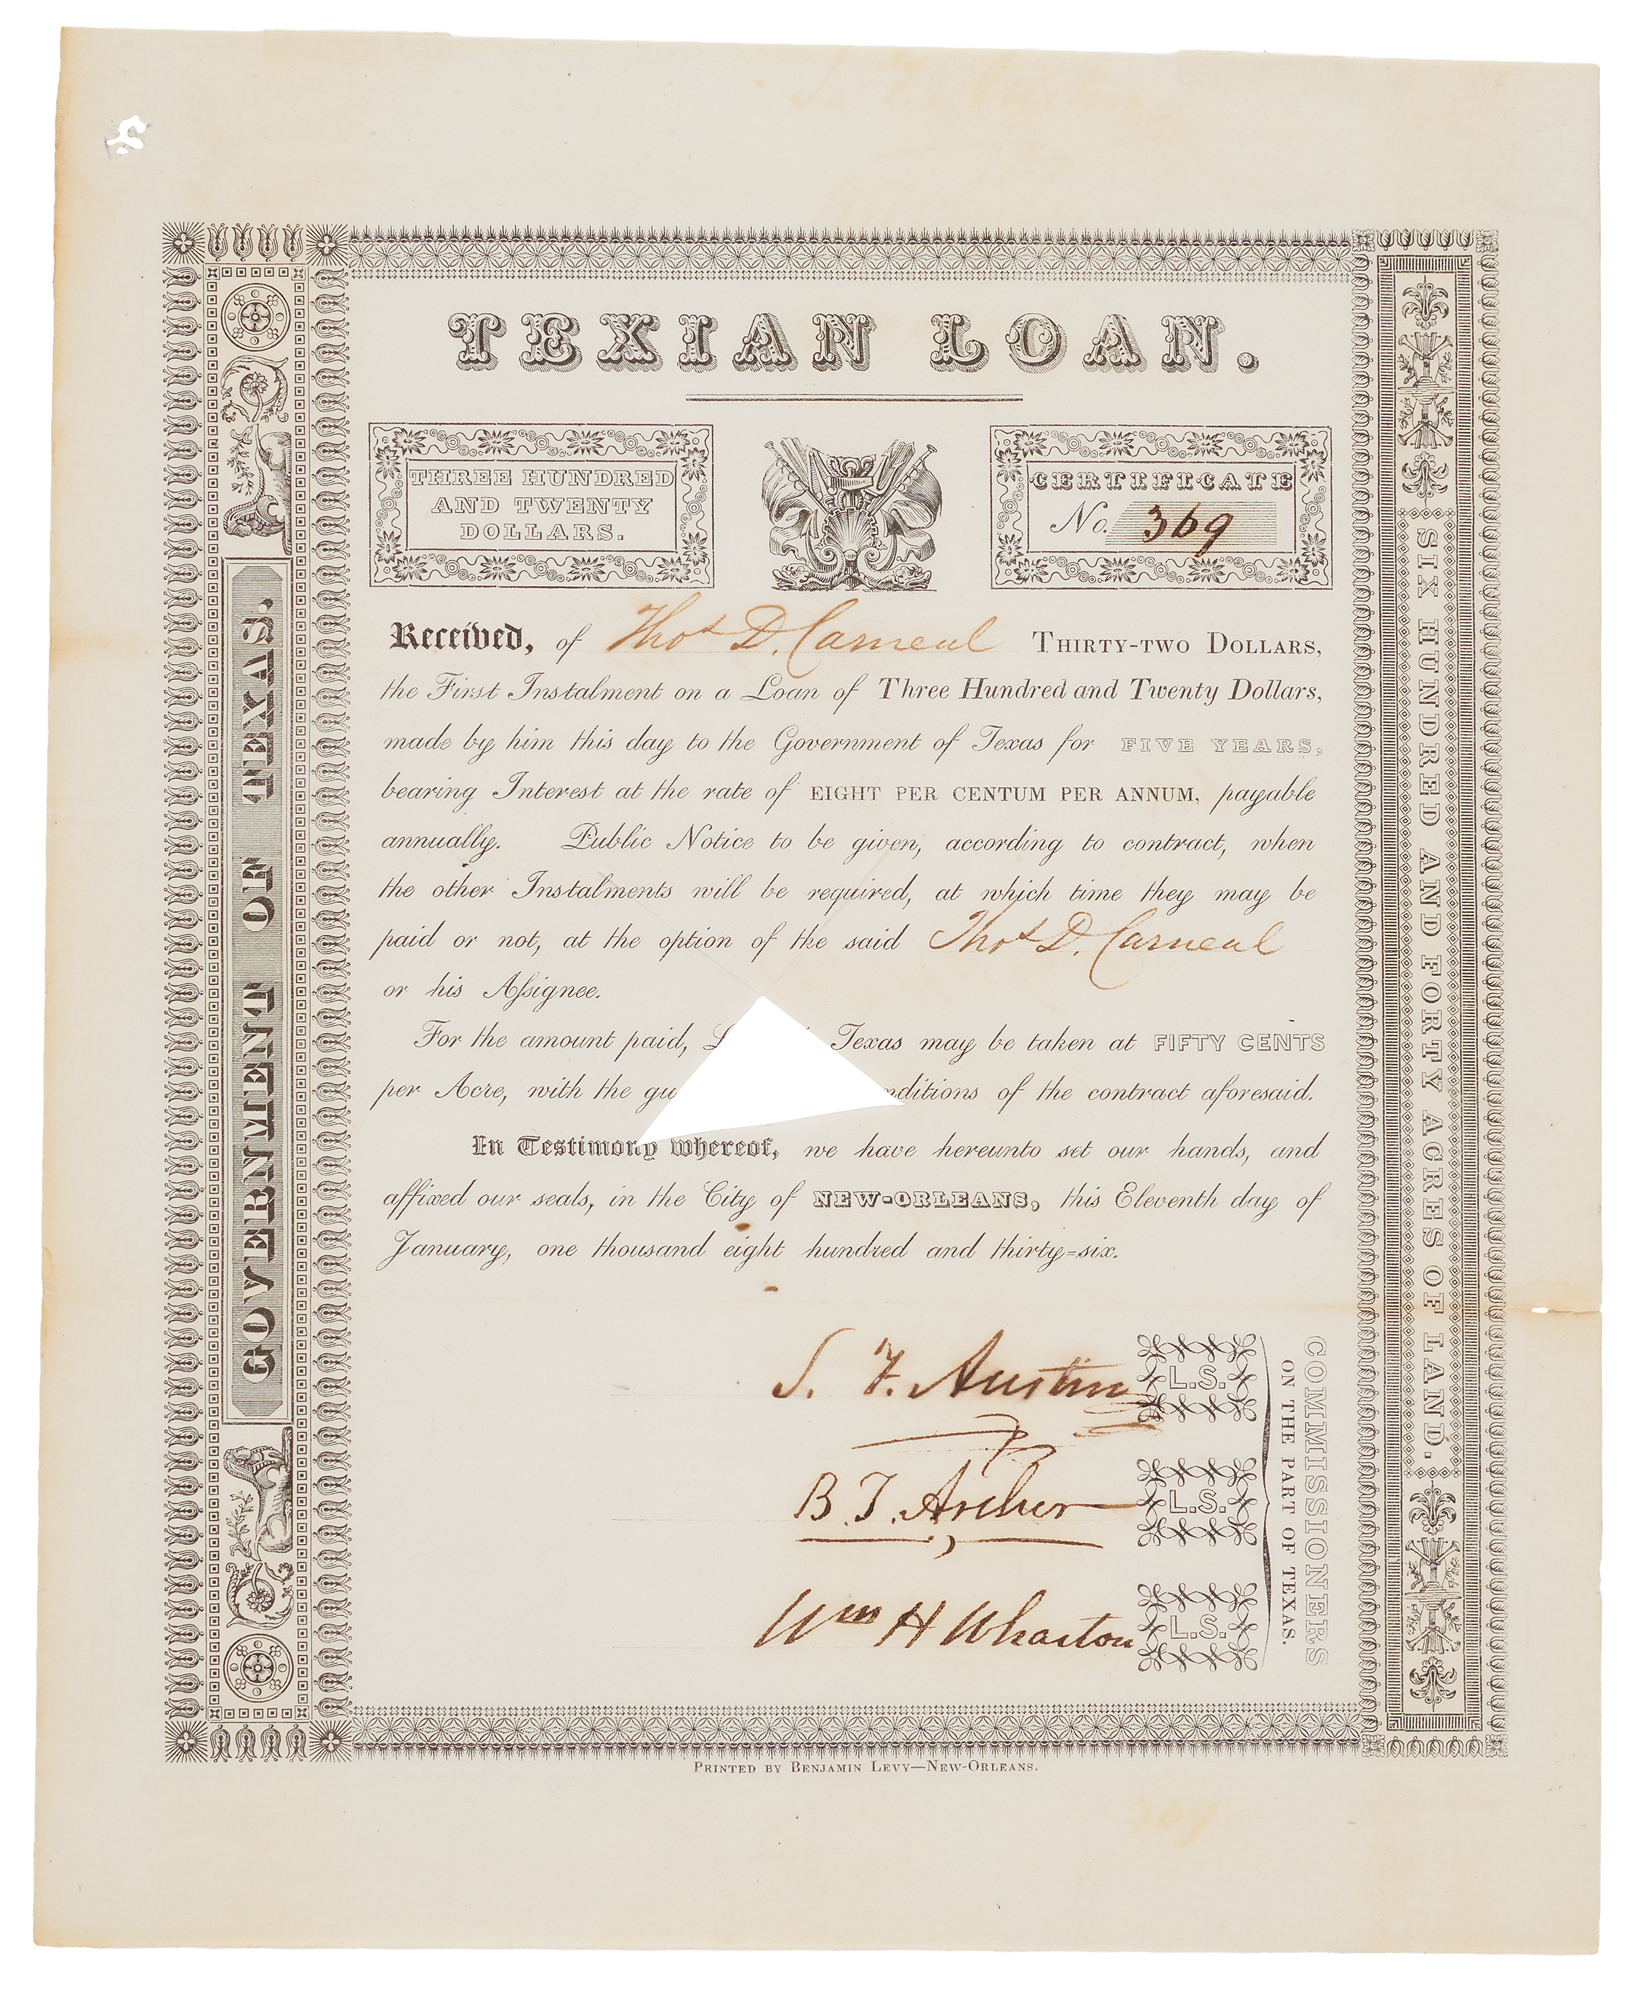 TEXIAN LOAN.
THREE HUNDRED
AND TWENTY
DOLLARS.
CERTIFICATE
No. 369
Received, of Thos D. Carneal THIRTY-TWO DOLLARS,
the First Instalment on a Loan of Three Hundred and Twenty Dollars,
made by him this day to the Government of Texas for FIVE YEARS,
bearing Interest at the rate of EIGHT PER CENTUM PER ANNUM, payable
annually. Public Notice to be given, according to contract, when
the other Instalments will be required, at which time they may be
paid or not, at the option of the said Thos D. Carneal
or his Assignee.
For the amount paid, Texas may be taken at FIFTY CENTS
per Acre, with the of the contract aforesaid.
In Testimony whereof, we have hereunto set our hands, and
affixed our seals, in the City of NEW-ORLEANS, this Eleventh day of
January, one thousand eight hundred and thirty-six.
S. F. Austin L.S.
B. T. Archer L.S.
Wm H Wharton L.S.
COMMISSIONERS
ON THE PART OF TEXAS.
GOVERNMENT OF TEXAS.
SIX HUNDRED AND FORTY ACRES OF LAND.
PRINTED BY BENJAMIN LEVY—NEW-ORLEANS.